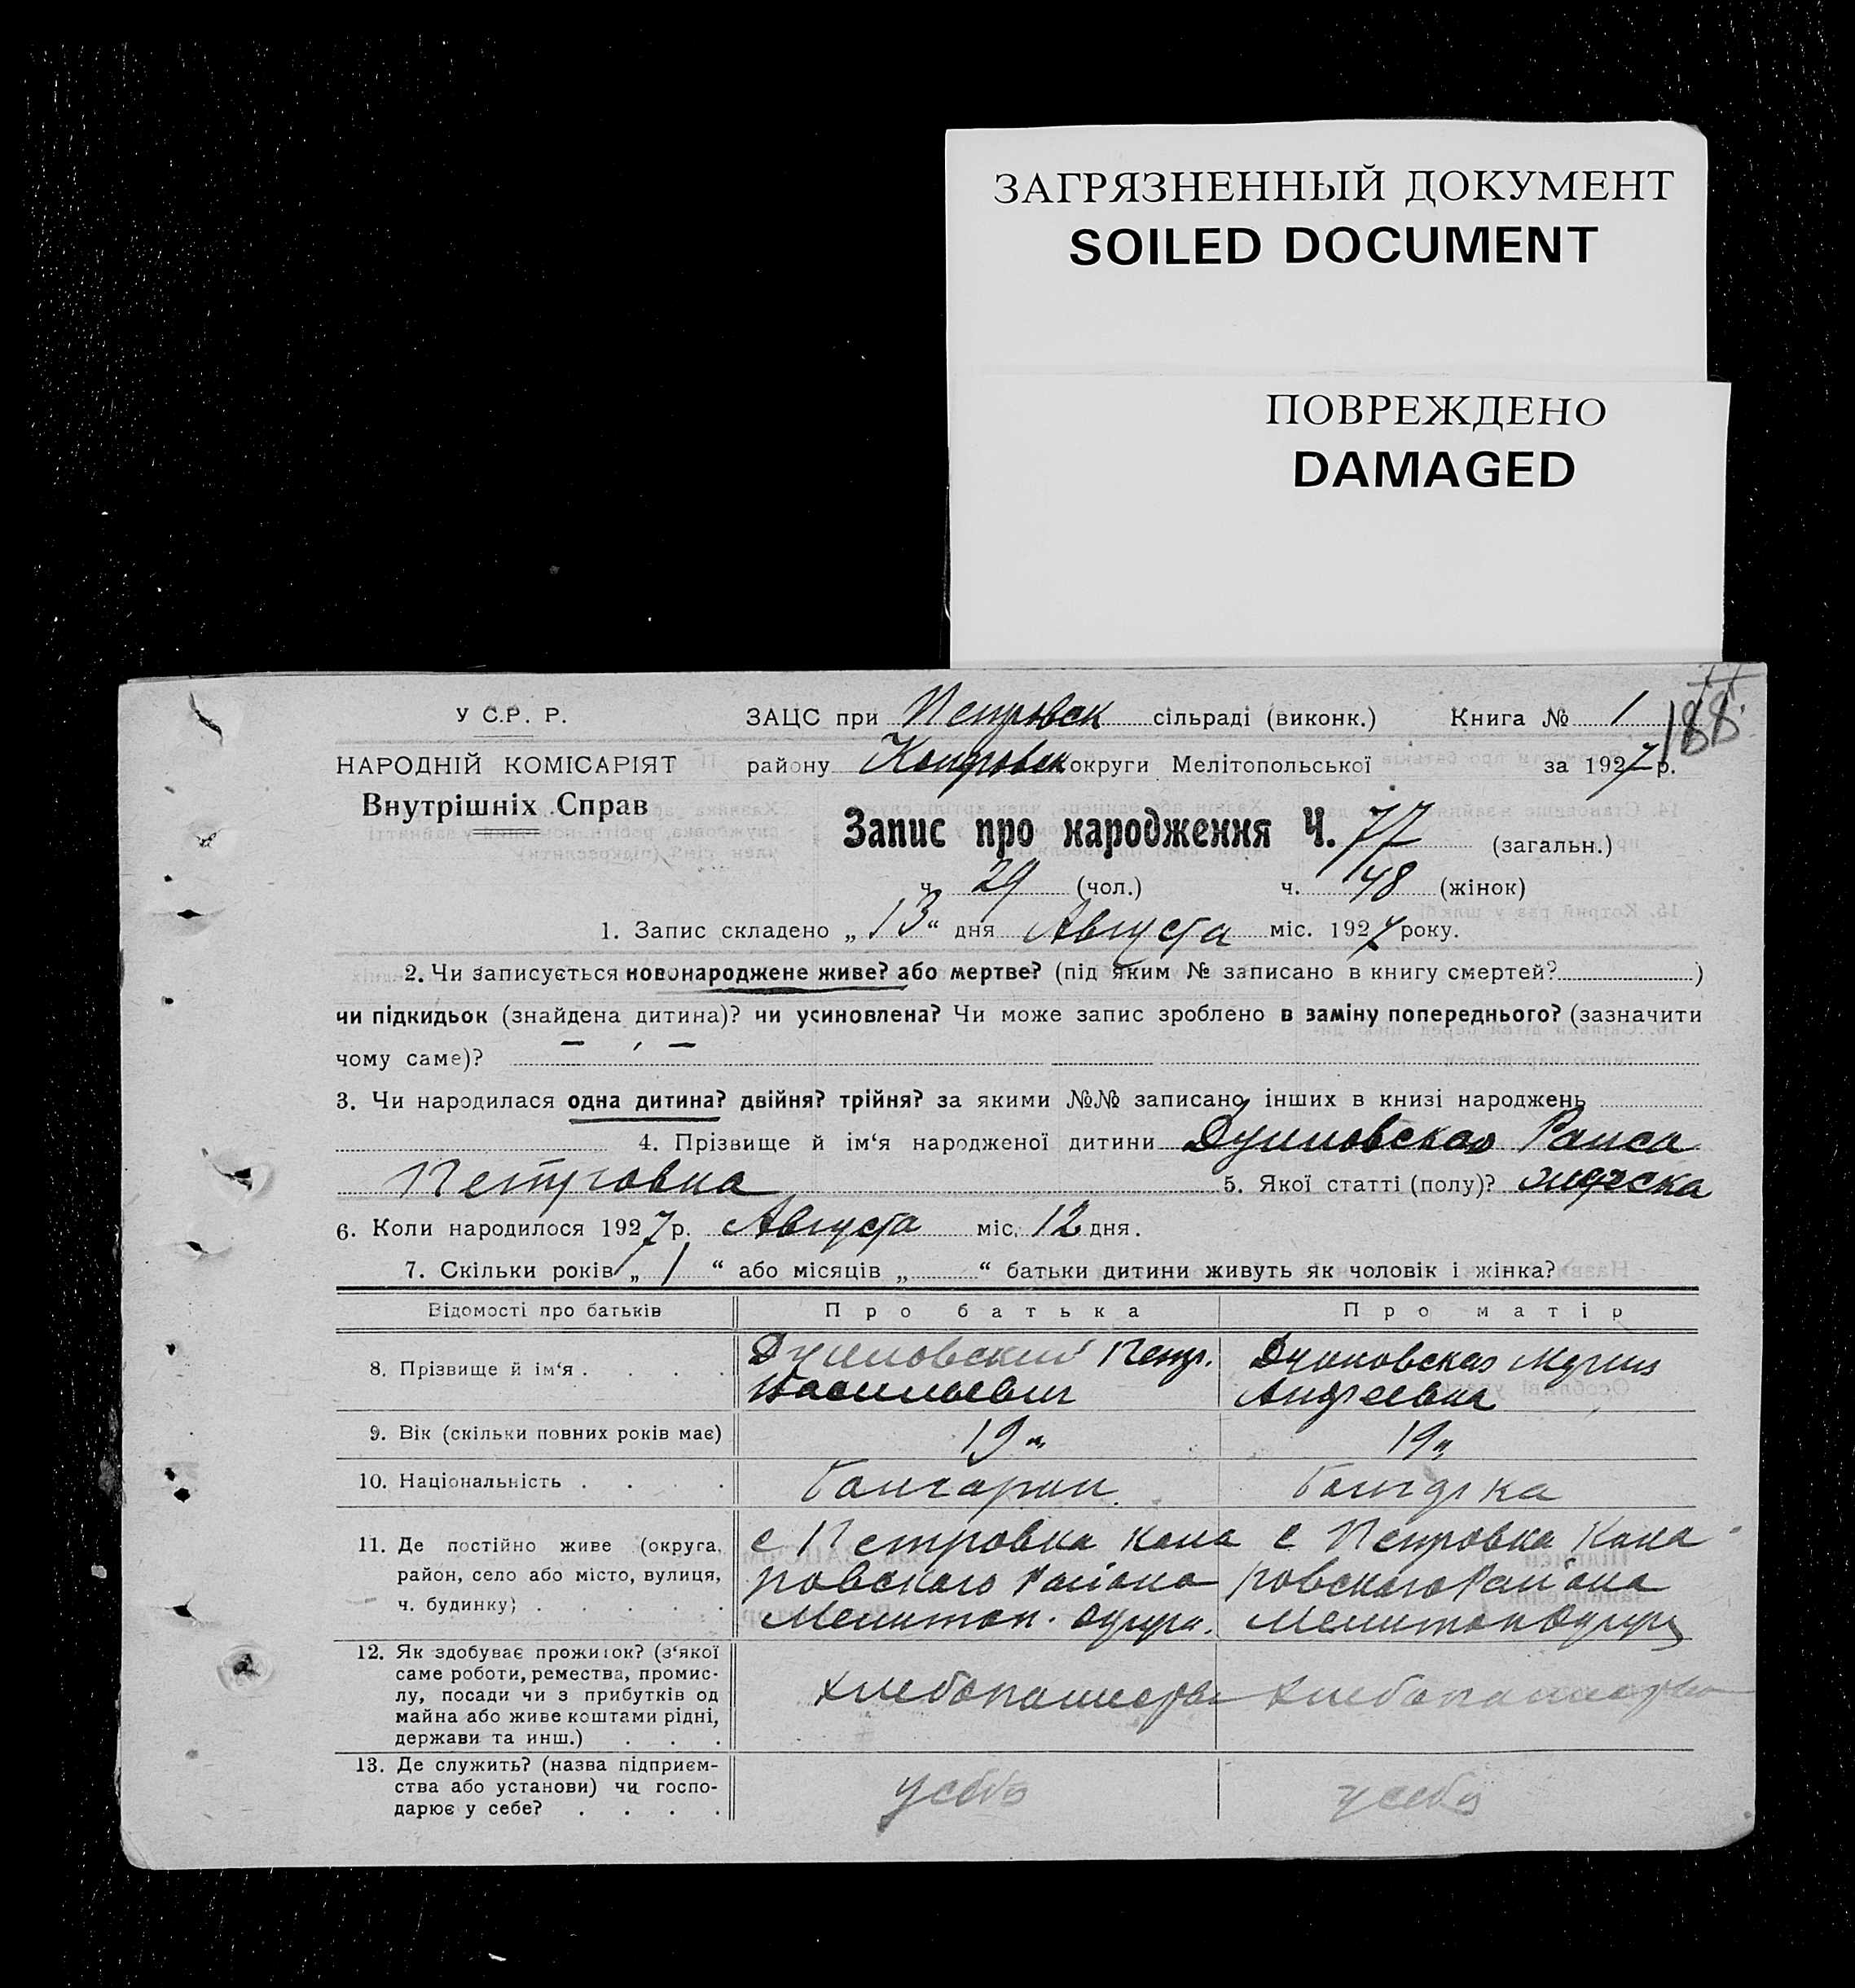 ЗАГРЯЗНЕННЫЙ ДОКУМЕНТ
SOILED DOCUMENT
ПОВРЕЖДЕНО
DAMAGED
У С.Р. Р.
ЗАЦС при Петровск сільраді (виконк.) Книга № 1
188
НАРОДНІЙ КОМІСАРІЯТ
району округи Мелітопольської за 1927 р.
Внутрішніх Справ
Запис про народження Ч. 77 (загальн.)
ч. 29 (чол.) ч. 48 (жінок)
1. Запис складено „ 13 “ дня Августа міс. 1927 року.
2. Чи записується новонароджене живе? або мертве? (під яким № записано в книгу смертей? )
чи підкидьок (знайдена дитина)? чи усиновлена? Чи може запис зроблено в заміну попереднього? (зазначити
чому саме)? — , —
3. Чи народилася одна дитина? двійня? трійня? за якими №№ записано інших в книзі народжень
4. Прізвище й ім‘я народженої дитини Раиса
Петровна 5. Якої статті (полу)?
6. Коли народилося 1927 р. Августа міс. 12 дня.
7. Скільки років „ 1 “ або місяців „ “ батьки дитини живуть як чоловік і жінка?
Відомості про батьків Про батька Про матір
8. Прізвище й ім‘я . . . . Петр. Мария
Васильевич Андреевна
9. Вік (скільки повних років має) 19 19
10. Національність . . . . болгарин болгарка
11. Де постійно живе (округа, с Петровка с Петровка
район, село або місто, вулиця, ровского Района ровского Района
ч. будинку) . . . . . Мелитоп. Округа. Мелитоп Округа
12. Як здобуває прожиток? (з‘якої
саме роботи, ремества, промис-
лу, посади чи з прибутків од хлебопашество хлебопашество
майна або живе коштами рідні,
держави та инш.) . . .
13. Де служить? (назва підприєм-
ства або установи) чи госпо- у себя у себя
дарює у себе? . . . .